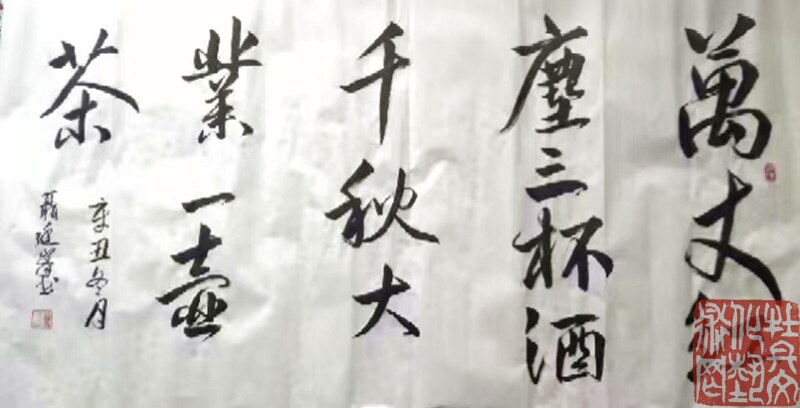 萬丈
塵三杯酒
千秋大
業一壺
茶
辛丑冬月